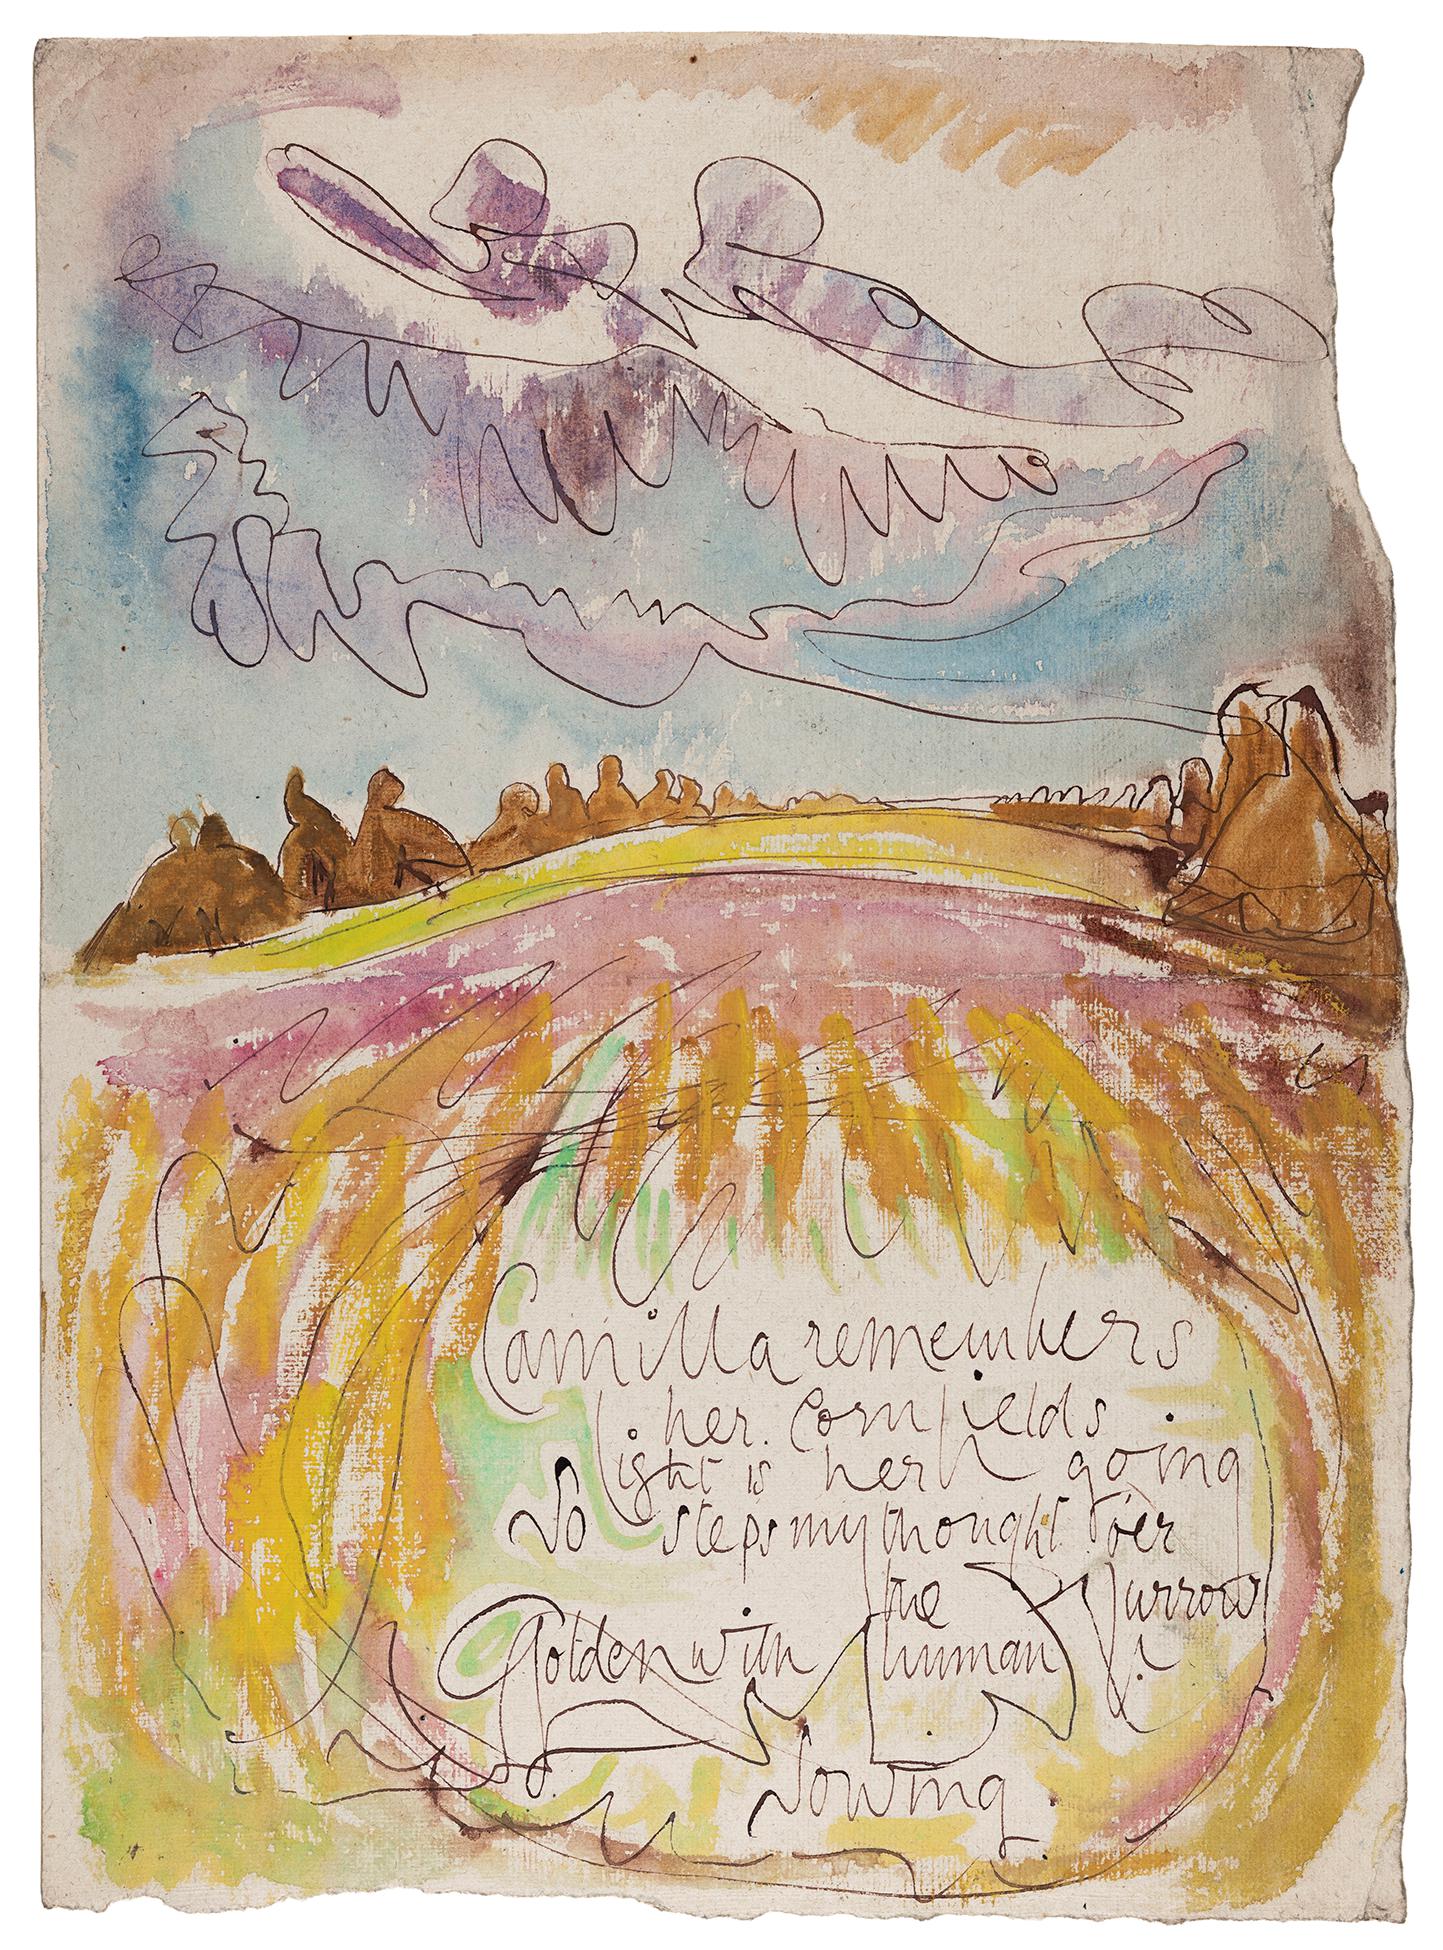 Camilla remembers
her Cornfields.
light is her going
So steps my thought o'er
the Furrow
Golden with human
Sowing.